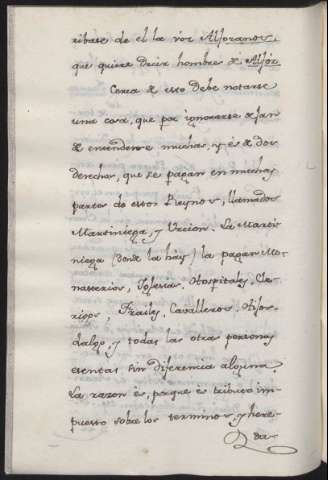 ribase de el la voz Alforanos,
que quiere decir hombre d. Alfóz.
Cerca d. esto debe notarse
una cosa, que por ignorarse dejan
d. entenderse muchas, y es d. dos
derechos, que se pagan en muchas
partes de estos Reynos, llamados
Martiniega, y Vrcion. La Marti-
niega (donde la háy) la pagan Mo-
nasterios, Iglesias, Hospitales, Cle-
rigos, Frayles, Cavalleros, Hijos-
dalgo, y todas las otras personas
esentas sin diferencia alguna.
La razon és, porque es tributo im-
puesto sobre los terminos, y here-
da-